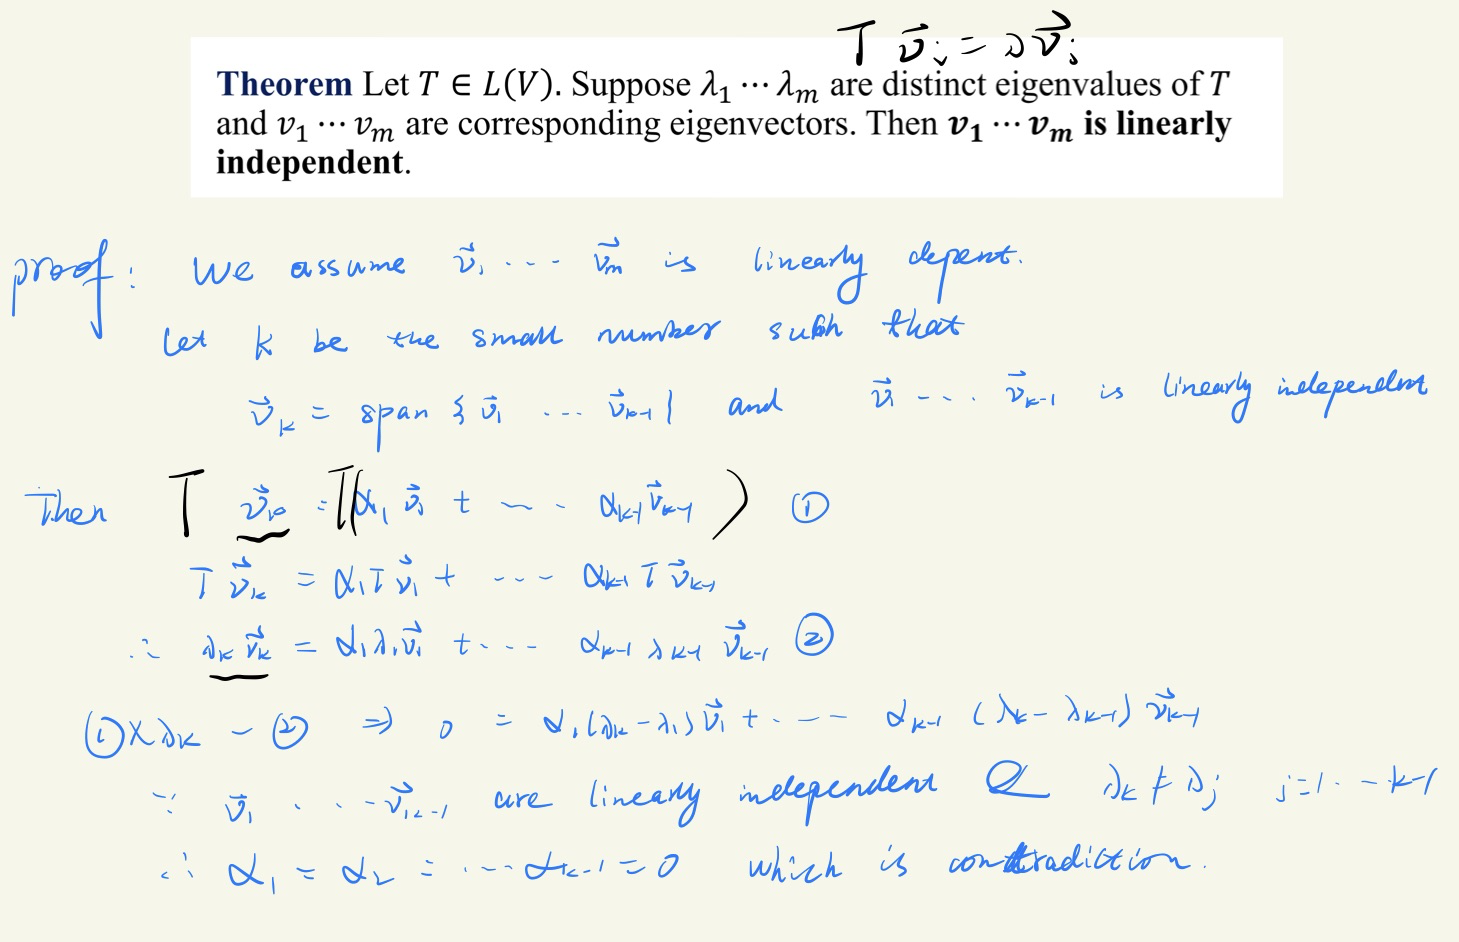 T v⃗ᵢ = λ v⃗ᵢ
Theorem Let T ∈ L(V). Suppose λ₁ ⋯ λₘ are distinct eigenvalues of T
and v₁ ⋯ vₘ are corresponding eigenvectors. Then v₁ ⋯ vₘ is linearly
independent.
proof: We assume v⃗₁ ---- v⃗ₘ is linearly depent.
Let k be the small number such that
v⃗ₖ = span { v⃗₁ ... v⃗ₖ₋₁ } and v⃗₁ ---. v⃗ₖ₋₁ is linearly independent
Then T v⃗ₖ = T(α₁ v⃗₁ + --- αₖ₋₁ v⃗ₖ₋₁) ①
T v⃗ₖ = α₁ T v⃗₁ + ---- αₖ₋₁ T v⃗ₖ₋₁
∴ λₖ v⃗ₖ = α₁ λ₁ v⃗₁ + ---- αₖ₋₁ λₖ₋₁ v⃗ₖ₋₁ ②
① × λₖ − ② ⇒ 0 = α₁(λₖ − λ₁) v⃗₁ + ---- αₖ₋₁ (λₖ − λₖ₋₁) v⃗ₖ₋₁
∵ v⃗₁ ...- v⃗ₖ₋₁ are linearly independent & λₖ ≠ λⱼ j=1.--k-1
∴ α₁ = α₂ = ...- αₖ₋₁ = 0 which is contradiction.